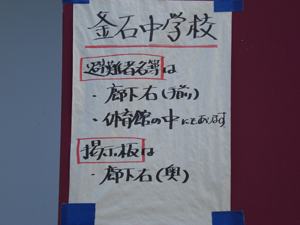 釜石中学校
避難者名簿は
・廊下右(手前)
・体育館の中にあります
掲示板は
・廊下右(奥)